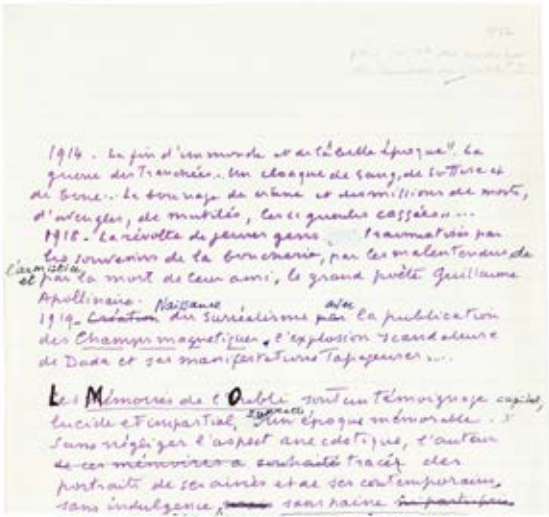 1914. La fin d'un monde et de la "Belle Époque". La
guerre des Tranchées. Un cloaque de sang, de sottise et
de boue. Le bourrage de crâne et des millions de morts,
d'aveugles, de mutilés, les "gueules cassées"...
1918. La révolte de jeunes gens traumatisés par
les souvenirs de la boucherie, par les malentendus de
l'armistice
et par la mort de leur ami, le grand poète Guillaume
Apollinaire.
Naissance avec
1919. Création du Surréalisme par la publication
des Champs magnétiques, l'explosion scandaleuse
de Dada et ses manifestations tapageuses....
Les Mémoires de l'Oubli sont un témoignage capital,
lucide et impartial, d'une époque mémorable.
Sans négliger l'aspect anecdotique, l'auteur
de ces mémoires a souhaité tracer des
portraits de ses aînés et de ses contemporains,
sans indulgence, sans haine